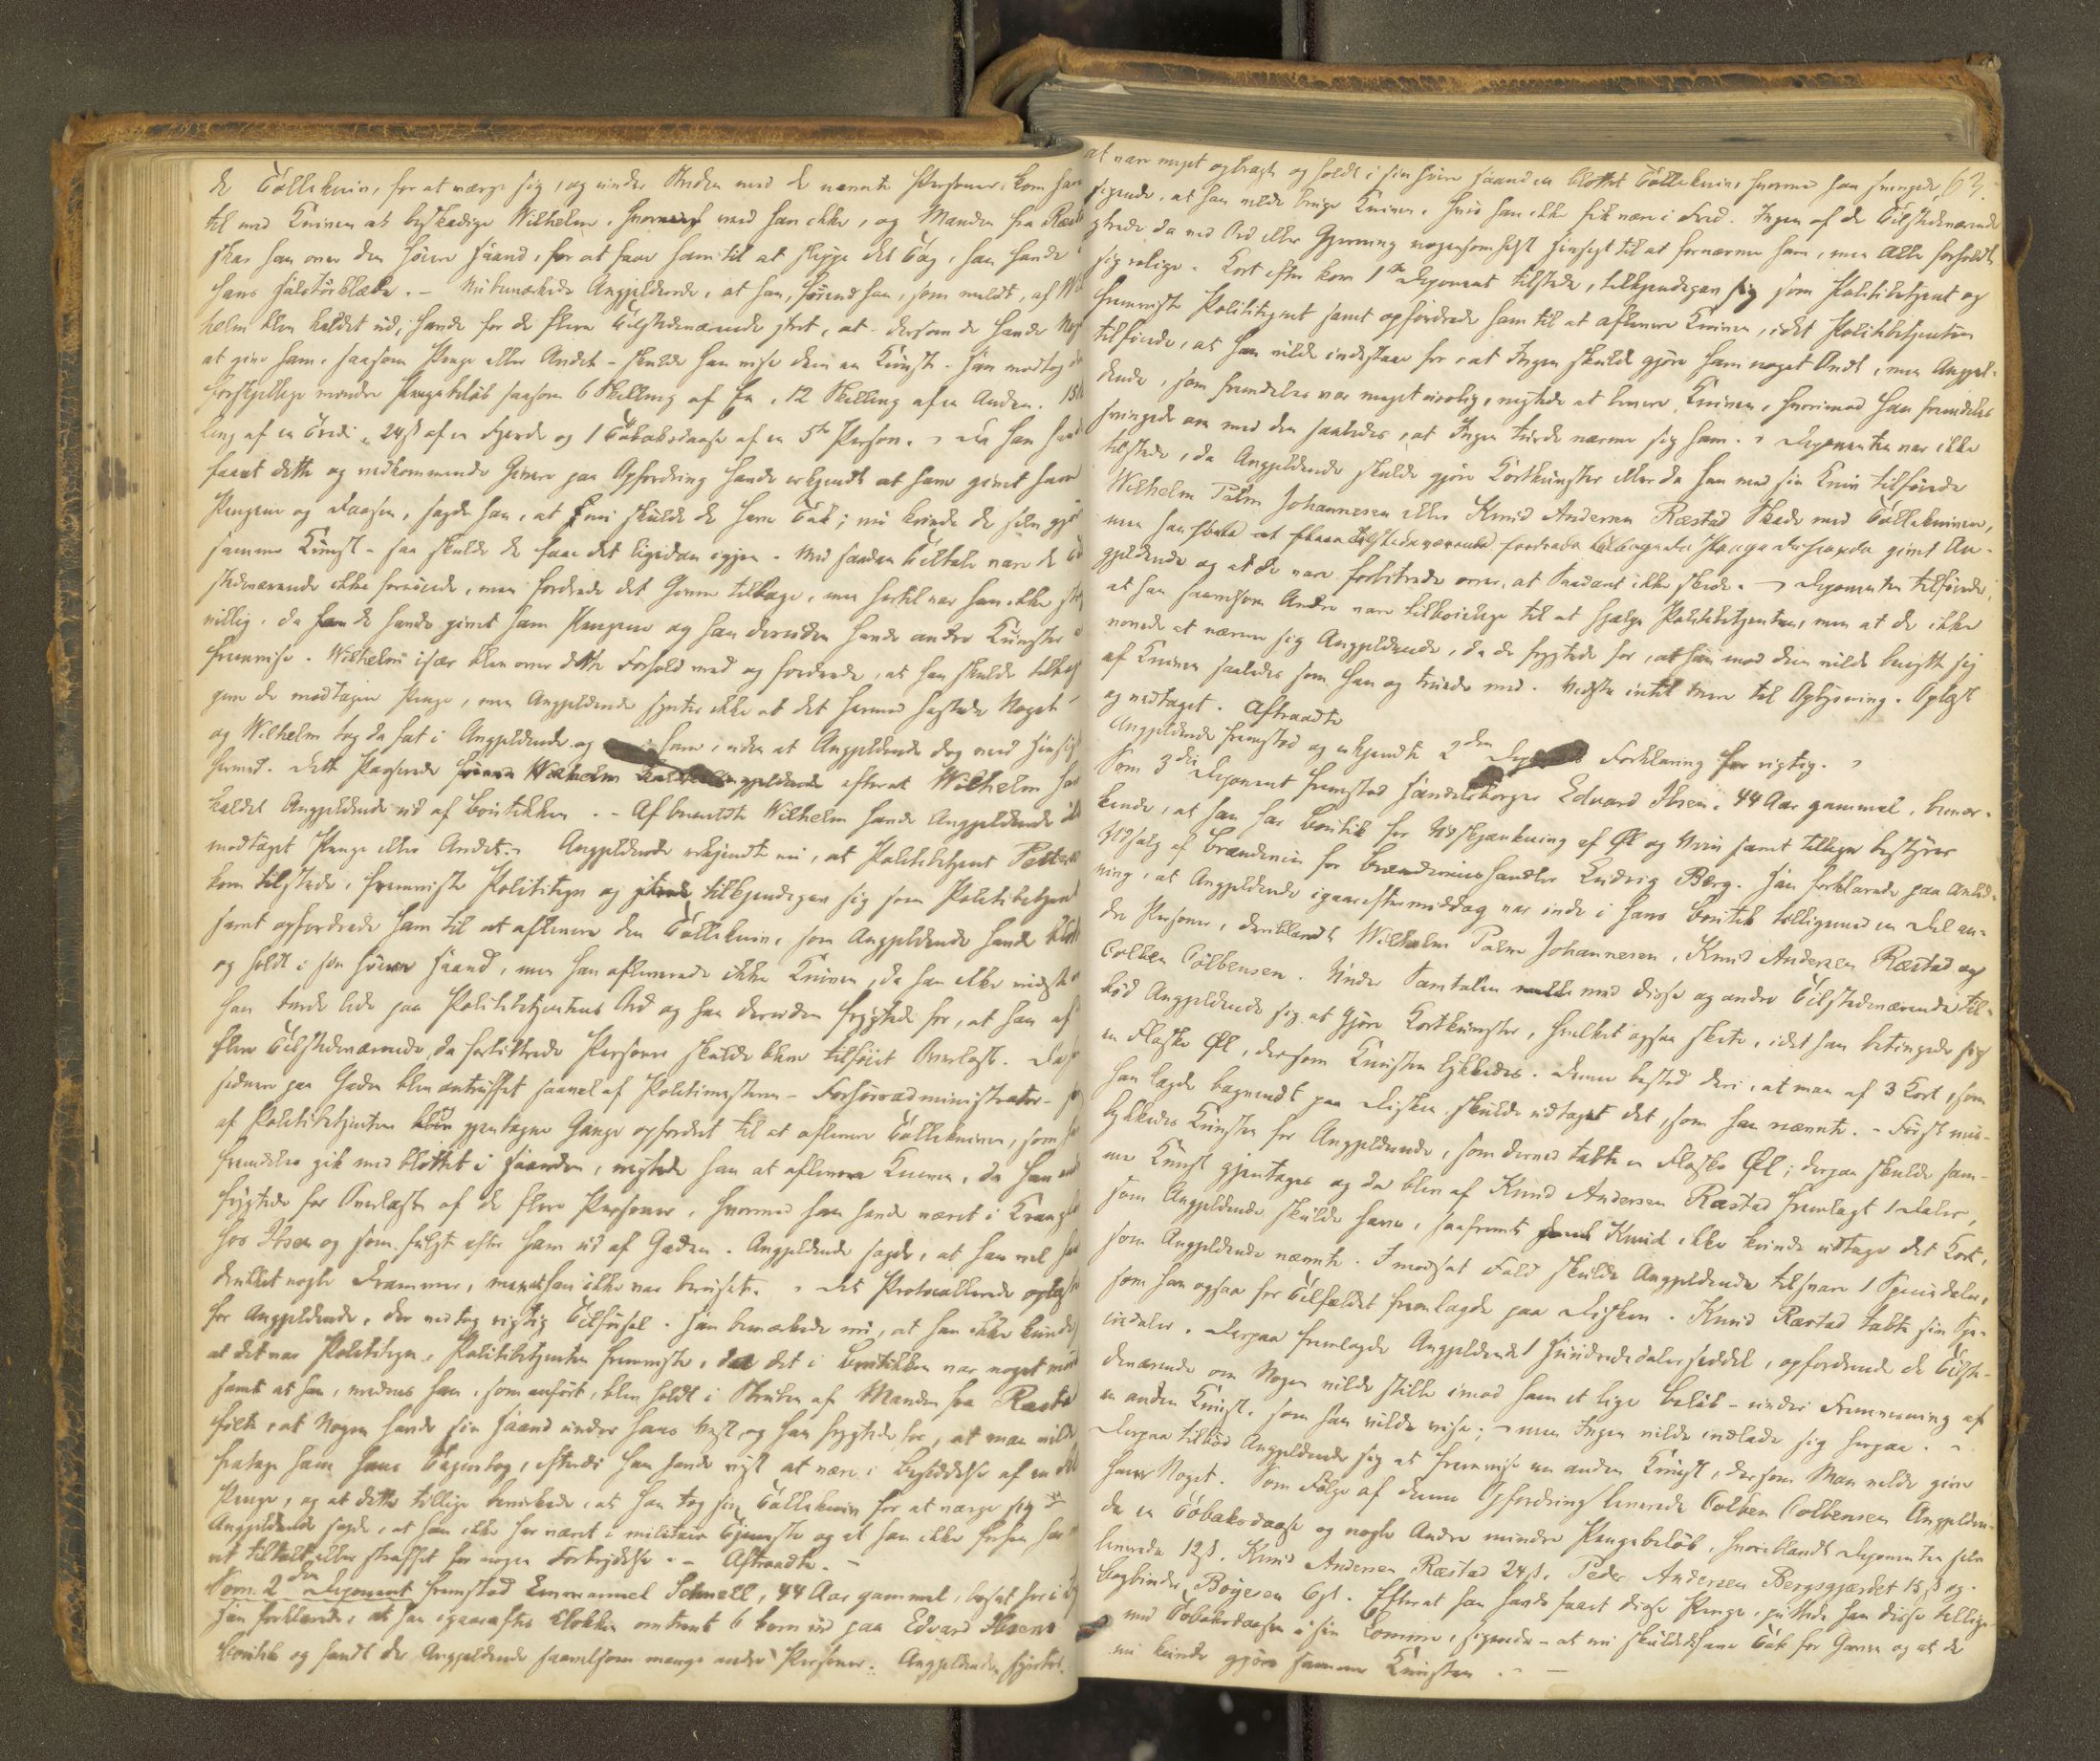 de Tollekniv, for at værge sig, og under Striden med de nævnte Personer, kom han
til med Kniven at beskadige Wilhelm, hvormed han ikke, og Manden fra Ræst
skar han over den høire Haand, for at faae ham til at slippe det Tag, han havde
hans Halstørklæde. – Nu bemærkede Angjeldende, at han, førend han, som meldt, af Wil
helm blev kaldet ud, havde for de flere Tilstedeværende ytret, at dersom de havde Noget
at give ham, saasom Penge eller Andet – skulde han vise dem en Kunst. Han modtog da
forskjellige mindre Pengebeløb saasom 6 Skilling af En, 12 Skilling af en Anden, 15
ling af en Tredie, 24ß af en Fjerde og 1 Tobaksdaase af en 5te Person. – Da han havde
faaet dette og vedkommende Givere paa Opfordring havde erkjendt at have givet ham
Pengene og Daasen, sagde han, at nu skulde de have Tak; nu kunde de selv gjøre
samme Kunst – saa skulde de faae det ligedan igjen. Med saadan Tiltale vare de Til
stedeværende ikke fornøiede, men fordrede det Givne tilbage, men hertil var han ikke strax
villig, da de havde givet ham Pengene og han desuden havde andre Kunster at
fremvise. Wilhelm især blev over dette Forhold vred og fordrede, at han skulde tilbage
give de modtagne Penge, men Angjeldende syntes ikke at det hermed hastede Noget
og Wilhelm tog da fat i Angjeldende og ham, uden at Angjeldende dog ved Hensigt
hermed. Dette Passerede efterat Wilhelm havde
kaldet Angjeldende ud af Boutikken. – Af bemeldte Wilhelm havde Angjeldende ikke
modtaget Penge eller Andet. – Angjeldende erkjendte nu, at Politibetjent Petter
kom tilstede, fremviste Polititegn og tilkjendegav sig som Politibetjent
samt opfordrede ham til at aflevere den Tollekniv, som Angjeldende havde blottet
og holdt i sin høire Haand, men han afleverede ikke Kniven, da han ikke vidste om
han turde lide paa Politibetjentens Ord og han desuden frygtede for, at han af
flere Tilstedeværende, da forbittrede Personer skulde blive tilføiet Overlast. Da han
sidenere paa Gaden blev antruffet saavel af Politimesteren – Forhørsadministrator – som
af Politibetjenten blev gjentagne Gange opfordret til at aflevere Tollekniven, som han
fremdeles gik med blottet i Haanden, nægtede han at aflevere Kniven, da han end
frygtede for Overlast af de flere Personer, hvormed han havde været i Krangel
hos Ibsen og som fulgte efter ham ud af Gaden. Angjeldende sagde, at han vel havde
drukket nogle Drammer, men at han ikke var beruset. – Det Protocollerede oplæst
for Angjeldende, der vedtog rigtig Tilførsel. Han bemærkede nu, at han ikke kunde see
at det var Polititegn, Politibetjenten fremviste, da det i Boutikken var noget mørkt
samt at han, medens han, som anført, blev holdt i Struben af Manden fra Ræstad
følte, at Nogen havde sin Haand under hans Vest og han frygtede for, at man vilde
fratage ham hans Tegnebog, eftersom han havde vist at være i Besiddelse af en Del
Penge, og at dette tillige bevirkede, at han tog sin Tollekniv for at værge sig.
Angjeldende sagde, at han ikke har været i militair Tjeneste og at han ikke forhen har vær
et tiltalt eller straffet for nogen Forbrydelse. – Aftraadte. –
Som 2den Deponent fremstod Emmanuel Schnell, 44 Aar gammel, bosat her i By
Han forklarede, at han igaaraftes Klokken omtrent 6 kom ind paa Edvard Ibsens
Boutik og fandt der Angjeldende saavelsom mange andre Personer. Angjeldende syntes
63.
at være meget opbragt og holdt i sin høire Haand en blottet Tollekniv, hvormed han svingede,
sigende, at han vilde bruge Kniven, hvis han ikke fik være i Fred. Ingen af de Tilstedeværende
ytrede da ved Ord eller Gjerning nogensomhelst Hensigt til at fornærme ham, men Alle forholdt
sig rolige. Kort efter kom 1ste Deponent tilstede, tilkjendegav sig som Politibetjent og
fremviste Polititegnet samt opfordrede ham til at aflevere Kniven, idet Politibetjenten
tilføiede, at han vilde indestaae for, at Ingen skulde gjøre ham noget Ondt, men Angjel-
dende, som fremdeles var meget urolig, nægtede at levere Kniven, hvorimod han fremdeles
svingede om med den saaledes, at Ingen turde nærme sig ham. – Deponenten var ikke
tilstede, da Angjeldende skulde gjøre Kortkunster eller da han med sin Kniv tilføiede
Wilhelm Palm Johannesen eller Knud Andersen Ræstad Skade med Tollekniven,
men han hørte at flere Tilstedeværende fordrede tilbage de Penge de havde givet An-
gjeldende og at de vare forbitrede over, at Saadant ikke skede. – Deponenten tilføiede,
at han saavelsom Andre vare tilbøielige til at hjælpe Politibetjenten, men at de ikke
vovede at nærme sig Angjeldende, da de frygtede for, at han mod dem vilde benytte sig
af Kniven saaledes som han og truede med. Vidste intet mere til Oplysning. Oplæst
og vedtaget. Aftraadte
Angjeldende fremstod og erkjendte 2den Forklaring for rigtig. –
Som 3die Deponent fremstod Handelsborger Edvard Ibsen, 44 Aar gammel, bemær-
kende, at han har Boutik for Udskjænkning af Øl og Viin samt tillige bestyrer
Udsalg af Brændeviin for Brændeviinshandler Ludvig Berg. Han forklarede paa Anled-
ning, at Angjeldende igaareftermiddag var inde i hans Boutik tilligemed en Del an-
dre Personer, deriblandt Wilhelm Palm Johannesen, Knud Andersen Ræstad og
Colben Colbensen. Under Samtalen med disse og andre Tilstedeværende til-
bød Angjeldende sig at gjøre Kortkunster, hvilket ogsaa skete, idet han betingede sig
en Flaske Øl, dersom Kunsten lykkedes. Denne bestod deri, at man af 3 Kort, som
han lagde bagvendt paa Disken, skulde udtaget det, som han nævnte. – Først mis-
lykkedes Kunsten for Angjeldende, som derved tabte en Flaske Øl; derpaa skulde sam-
me Kunst gjentages og da blev af Knud Andersen Ræstad fremlagt 1 Daler,
som Angjeldende skulde have, saafremt Knud ikke kunde udtage det Kort,
som Angjeldende nævnte. I modsat Fald skulde Angjeldende tilsvare 1 Speciedaler,
som han ogsaa for Tilfældet fremlagde paa Disken. Knud Ræstad tabte sin Spe-
ciedaler. Derpaa fremlagde Angjeldende 1 Hundrededalerseddel, opfordrende de Tilste-
deværende om Nogen vilde stille imod ham et lige Beløb – under Fremvisning af
en anden Kunst, som han vilde vise; – men Ingen vilde indlade sig herpaa. –
Derpaa tilbød Angjeldende sig at fremvise en anden Kunst, dersom Man vilde give
ham Noget. Som Følge af denne Opfordring leverede Colben Colbensen Angjelden-
de en Tobaksdaase og nogle Andre mindre Pengebeløb, hvoriblandt Deponenten selv
leverede 12ß, Knud Andersen Ræstad 24ß, Peder Andersen Bergsgjærdet 15ß og
Bogbinder Bøyesen 6ß. Efterat han havde faaet disse Penge, puttede han disse tillige-
med Tobaksdaasen i sin Lomme, sigende – at nu skulde de have Tak for Gaven og at de
nu kunde gjøre samme Kunsten. –